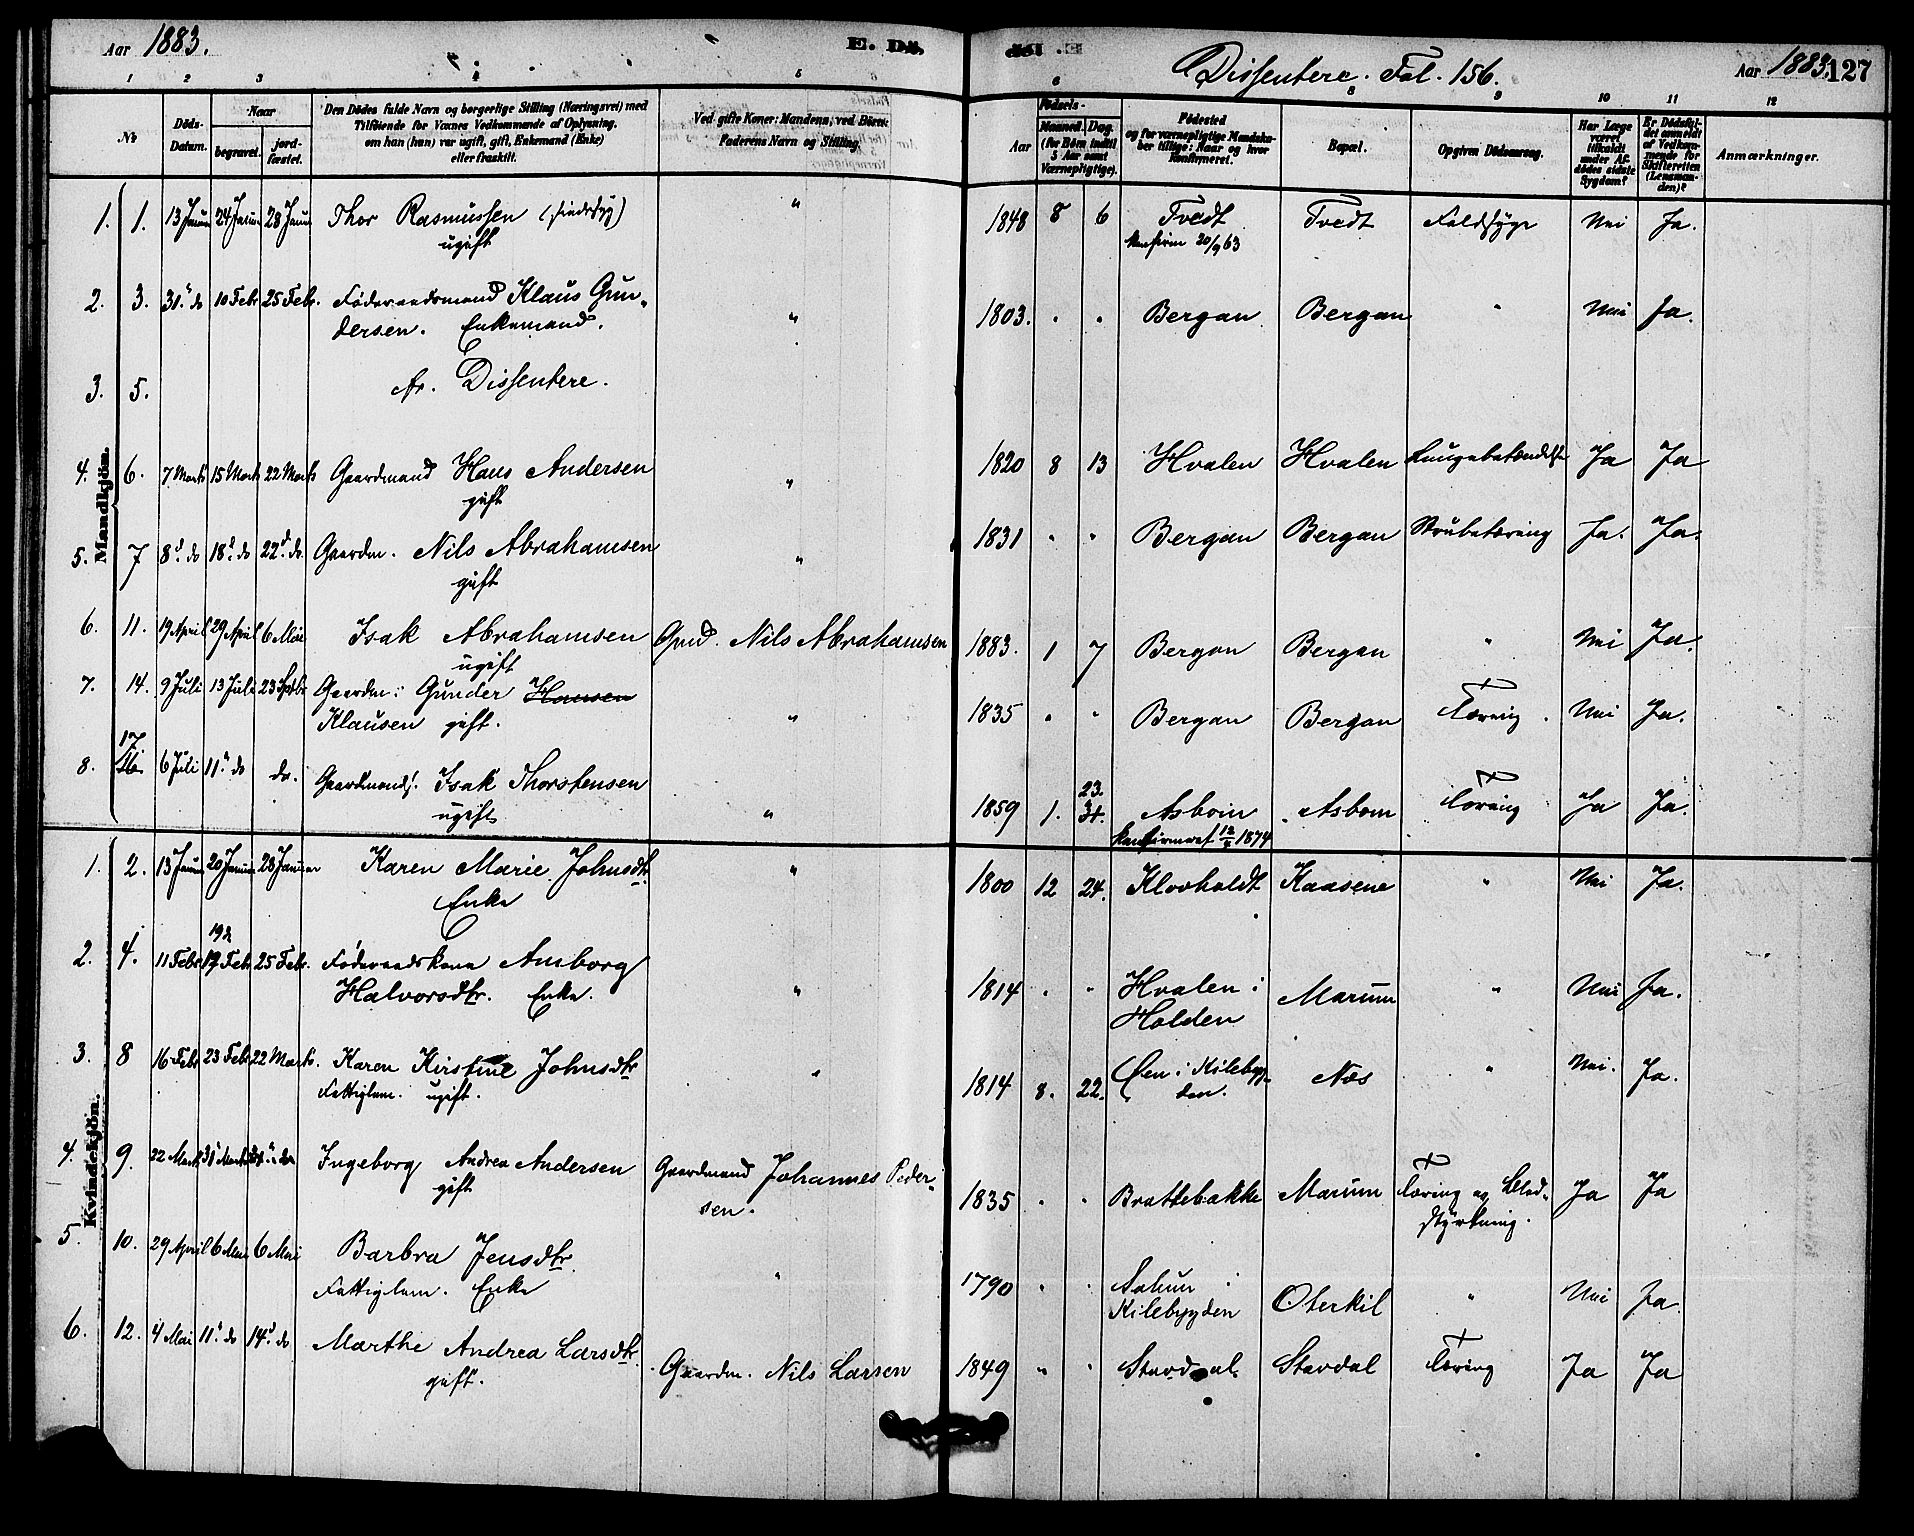 Aar 1883.
E. Dö.
Dissentere. Fol. 156.
Aar 1883. 127
1 2 3 4 5 6 8 9 10 11 12
No
Döds-Datum.
Naar
begravet.
jord-fæstet.
Den Dödes fulde Navn og borgerlige Stilling (Næringsvei) med
Tilföiende for Voxnes Vedkommende af Oplysning,
om han (hun) var ugift, gift, Enkemand (Enke)
eller fraskilt.
Ved gifte Koner: Mandens, ved Börn:
Faderens Navn og Stilling.
Födsels-
Aar
Maaned. Dag.
(for Börn indtil
5 Aar samt
Værnepligtige).
Födested
og for værnepligtige Mandska-
ber tillige: Naar og hvor
konfirmeret.
Bopæl.
Opgiven Dödsaarsag.
Har Læge
været
tilkaldt
under Af-
dödes sidste
Sygdom?
Er Dödsfal-
det anmeldt
af Vedkom-
mende for
Skifteretten
(Lensman-
den)?
Anmærkninger.
Mandkjön.
1. 1. 13 Januar 24 Januar 28 Januar Thor Rasmussen (sindssyg) " 1848 8 6 Tvedt Tvedt Faldsyge Nei Ja.
ugift Konfirm 20/9 63
2. 3. 31. do 10 Febr 25 Febr. Föderaadsmand Klaus Gun-
dersen. Enkemand. " 1803. " " Bergan Bergan " Nei Ja.
3. 5. fr. Dissentere.
4. 6. 7 Marts 15 Marts 22 Marts Gaardmand Hans Andersen " 1820 8 13 Hvalen Hvalen Lungebetændelse Ja Ja
gift
5. 7 8. do 18. do 22. do. Gaardm. Nils Abrahamsen " 1831 " " Bergan Bergan Strubetæring Ja. Ja.
gift
6. 11. 19 April 29 April 6 Mai Isak Abrahamsen Gmd. Nils Abrahamsen 1883. 1 7 Bergan Bergan " Nei Ja.
ugift
7. 14. 9 Juli 13 Juli 23 Septbr Gaardm: Gunder Hansen
Klausen gift. " 1835 " " Bergan Bergan Tæring. Nei Ja.
17
8. 16. 6 Juli 11. do do. Gaardmands. Isak Thorstensen " 1859 1. 23. 31. Asbom Asbom Tæring Ja Ja.
ugift konfirmeret 1874
Kvindekjön.
1. 2. 13 Januar 20 Januar 28 Januar Karen Marie Johnsdtr " 1800 12 24. Klovholdt Kaasene " Nei Ja.
Enke
2. 4. 11 Febr 19 Febr 25 Febr. Föderaadskone Ansborg
Halvorsdtr. Enke. " 1814 " " Hvalen i Holden Marum " Nei Ja.
3. 8 16 Febr 23 Febr 22 Marts. Karen Kirstine Johnsdtr " 1814 8. 22. Øen i Kilebyg-
den. Næs " Nei. Ja.
Fattiglem. ugift.
4. 9. 22 Marts 31 Marts do Ingeborg Andrea Andersen Gaardmand Johannes Peder-
sen. 1835 " " Brattebakke Marum Tæring og Blod-
styrtning. Ja Ja
gift
5. 10. 29 April 6 Mai 6 Mai Barbra Jensdtr. " 1790 " " i
Kilebygden Oterkil " Nei Ja.
Fattiglem. Enke
6. 12. 4 Mai 11. do 14. do Marthe Andrea Larsdtr. Gaardm. Nils Larsen 1849 " " Stavdal Stavdal Tæring Ja Ja
gift.